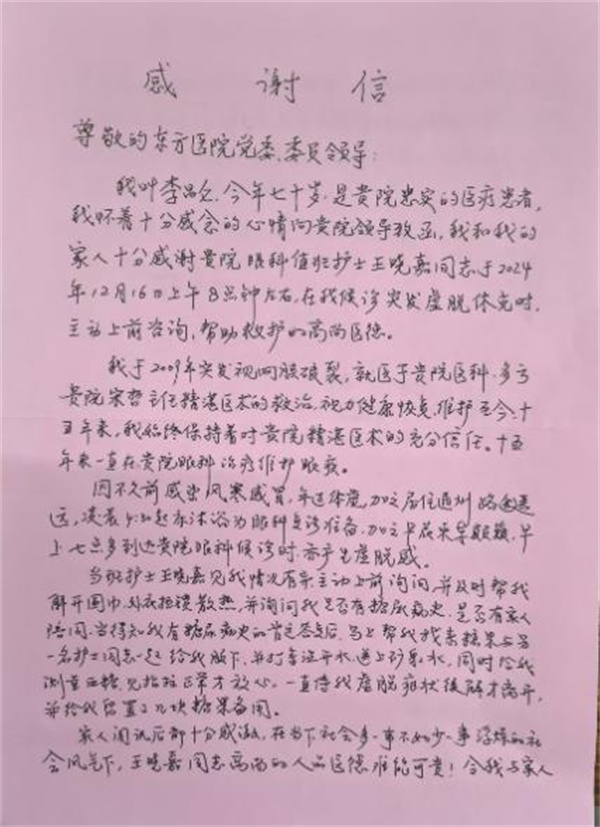 感谢信
尊敬的东方医院党委、委员领导:
我叫李昌,今年七十岁,是贵院忠实的医疗患者,
我怀着十分感念的心情向贵院领导致函,我和我的
家人十分感谢贵院眼科值班护士王晓嘉同志于2024
年12月16日上午8点钟左右,在我候诊突发虚脱休克时,
主动上前咨询,帮助救护的高尚医德。
我于2009年突发视网膜破裂,就医于贵院医科,多亏
贵院宋哲主任精湛医术的救治,视力健康恢复,维护至今,十
五年来,我始终保持着对贵院精湛医术的充分信任。十五
年来一直在贵院眼科治疗维护眼疾。
因不久前感染风寒感冒,年迈体虚,加之居住通州路途遥
远,凌晨4:30起床沐浴为眼科复诊准备,加之早晨未早,早
上七点多到达贵院眼科候诊时,产生虚脱感。
当班护士王晓嘉见我情况有异主动上前询问,并及时帮我
解开围巾、外衣拉锁散热,并询问我是否有糖尿病史,是否有家人
陪同,当得知我有糖尿病史的肯定答复后,马上帮我找来糖果与另
一名护士同志一起给我服下,并打来温开水,送上矿泉水,同时给我
测量血糖,见指标正常才放心,一直待我虚脱症状缓解才离开,
并给我留置了几块糖果备用。
家人闻讯后都十分感激,在当下社会多一事不如少一事浮燥的社
会风气下,王晓嘉同志高尚的人品医德难能可贵!令我与家人